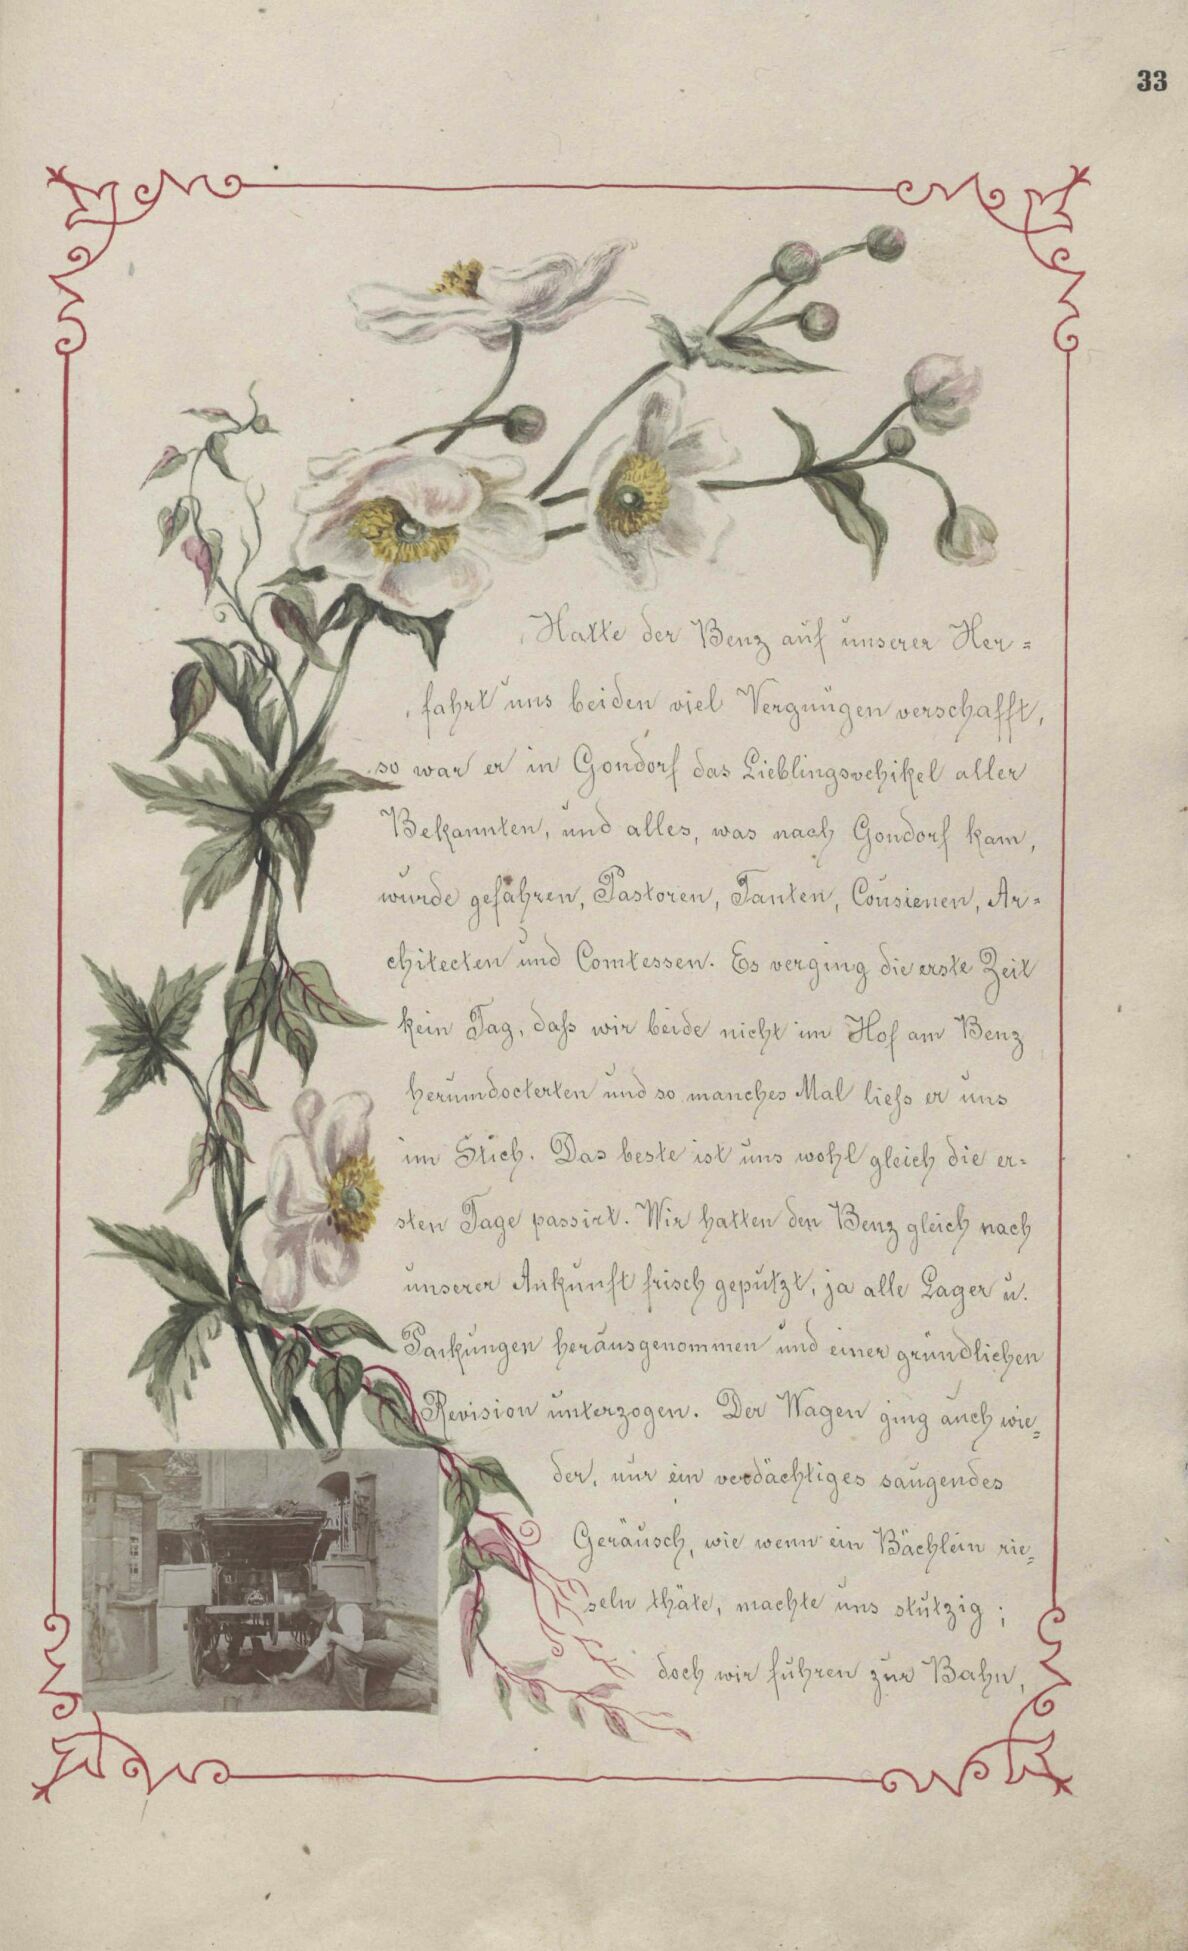 33
Hatte der Benz auf unserer Her=
fahrt uns beiden viel Vergnügen verschafft,
so war er in Gondorf das Lieblingsvehikel aller
Bekannten, und alles, was nach Gondorf kam,
wurde gefahren, Pastoren, Tanten, Cousienen, Ar=
chitecten und Comtessen. Es verging die erste Zeit
kein Tag, daß wir beide nicht im Hof am Benz
herumdocterten und so manches Mal ließ er uns
im Stich. Das beste ist uns wohl gleich die er=
sten Tage passirt. Wir hatten den Benz gleich nach
unserer Ankunft frisch geputzt, ja alle Lager u.
Packungen herausgenommen und einer gründlichen
Revision unterzogen. Der Wagen ging auch wie=
der, nur ein verdächtiges saugendes
Geräusch, wie wenn ein Bächlein rie=
seln thäte, machte uns stutzig;
doch wir fuhren zur Bahn,